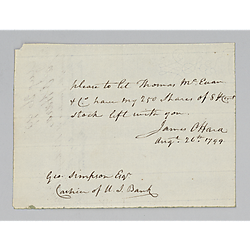 please to let Thomas McEuan
& Co. have my 250 Shares of 8 ⅌ Cent
stock left with you
James O'Hara
Augt. 26th. 1799
Geo Simpson Esqr
Cashier of U. S Bank